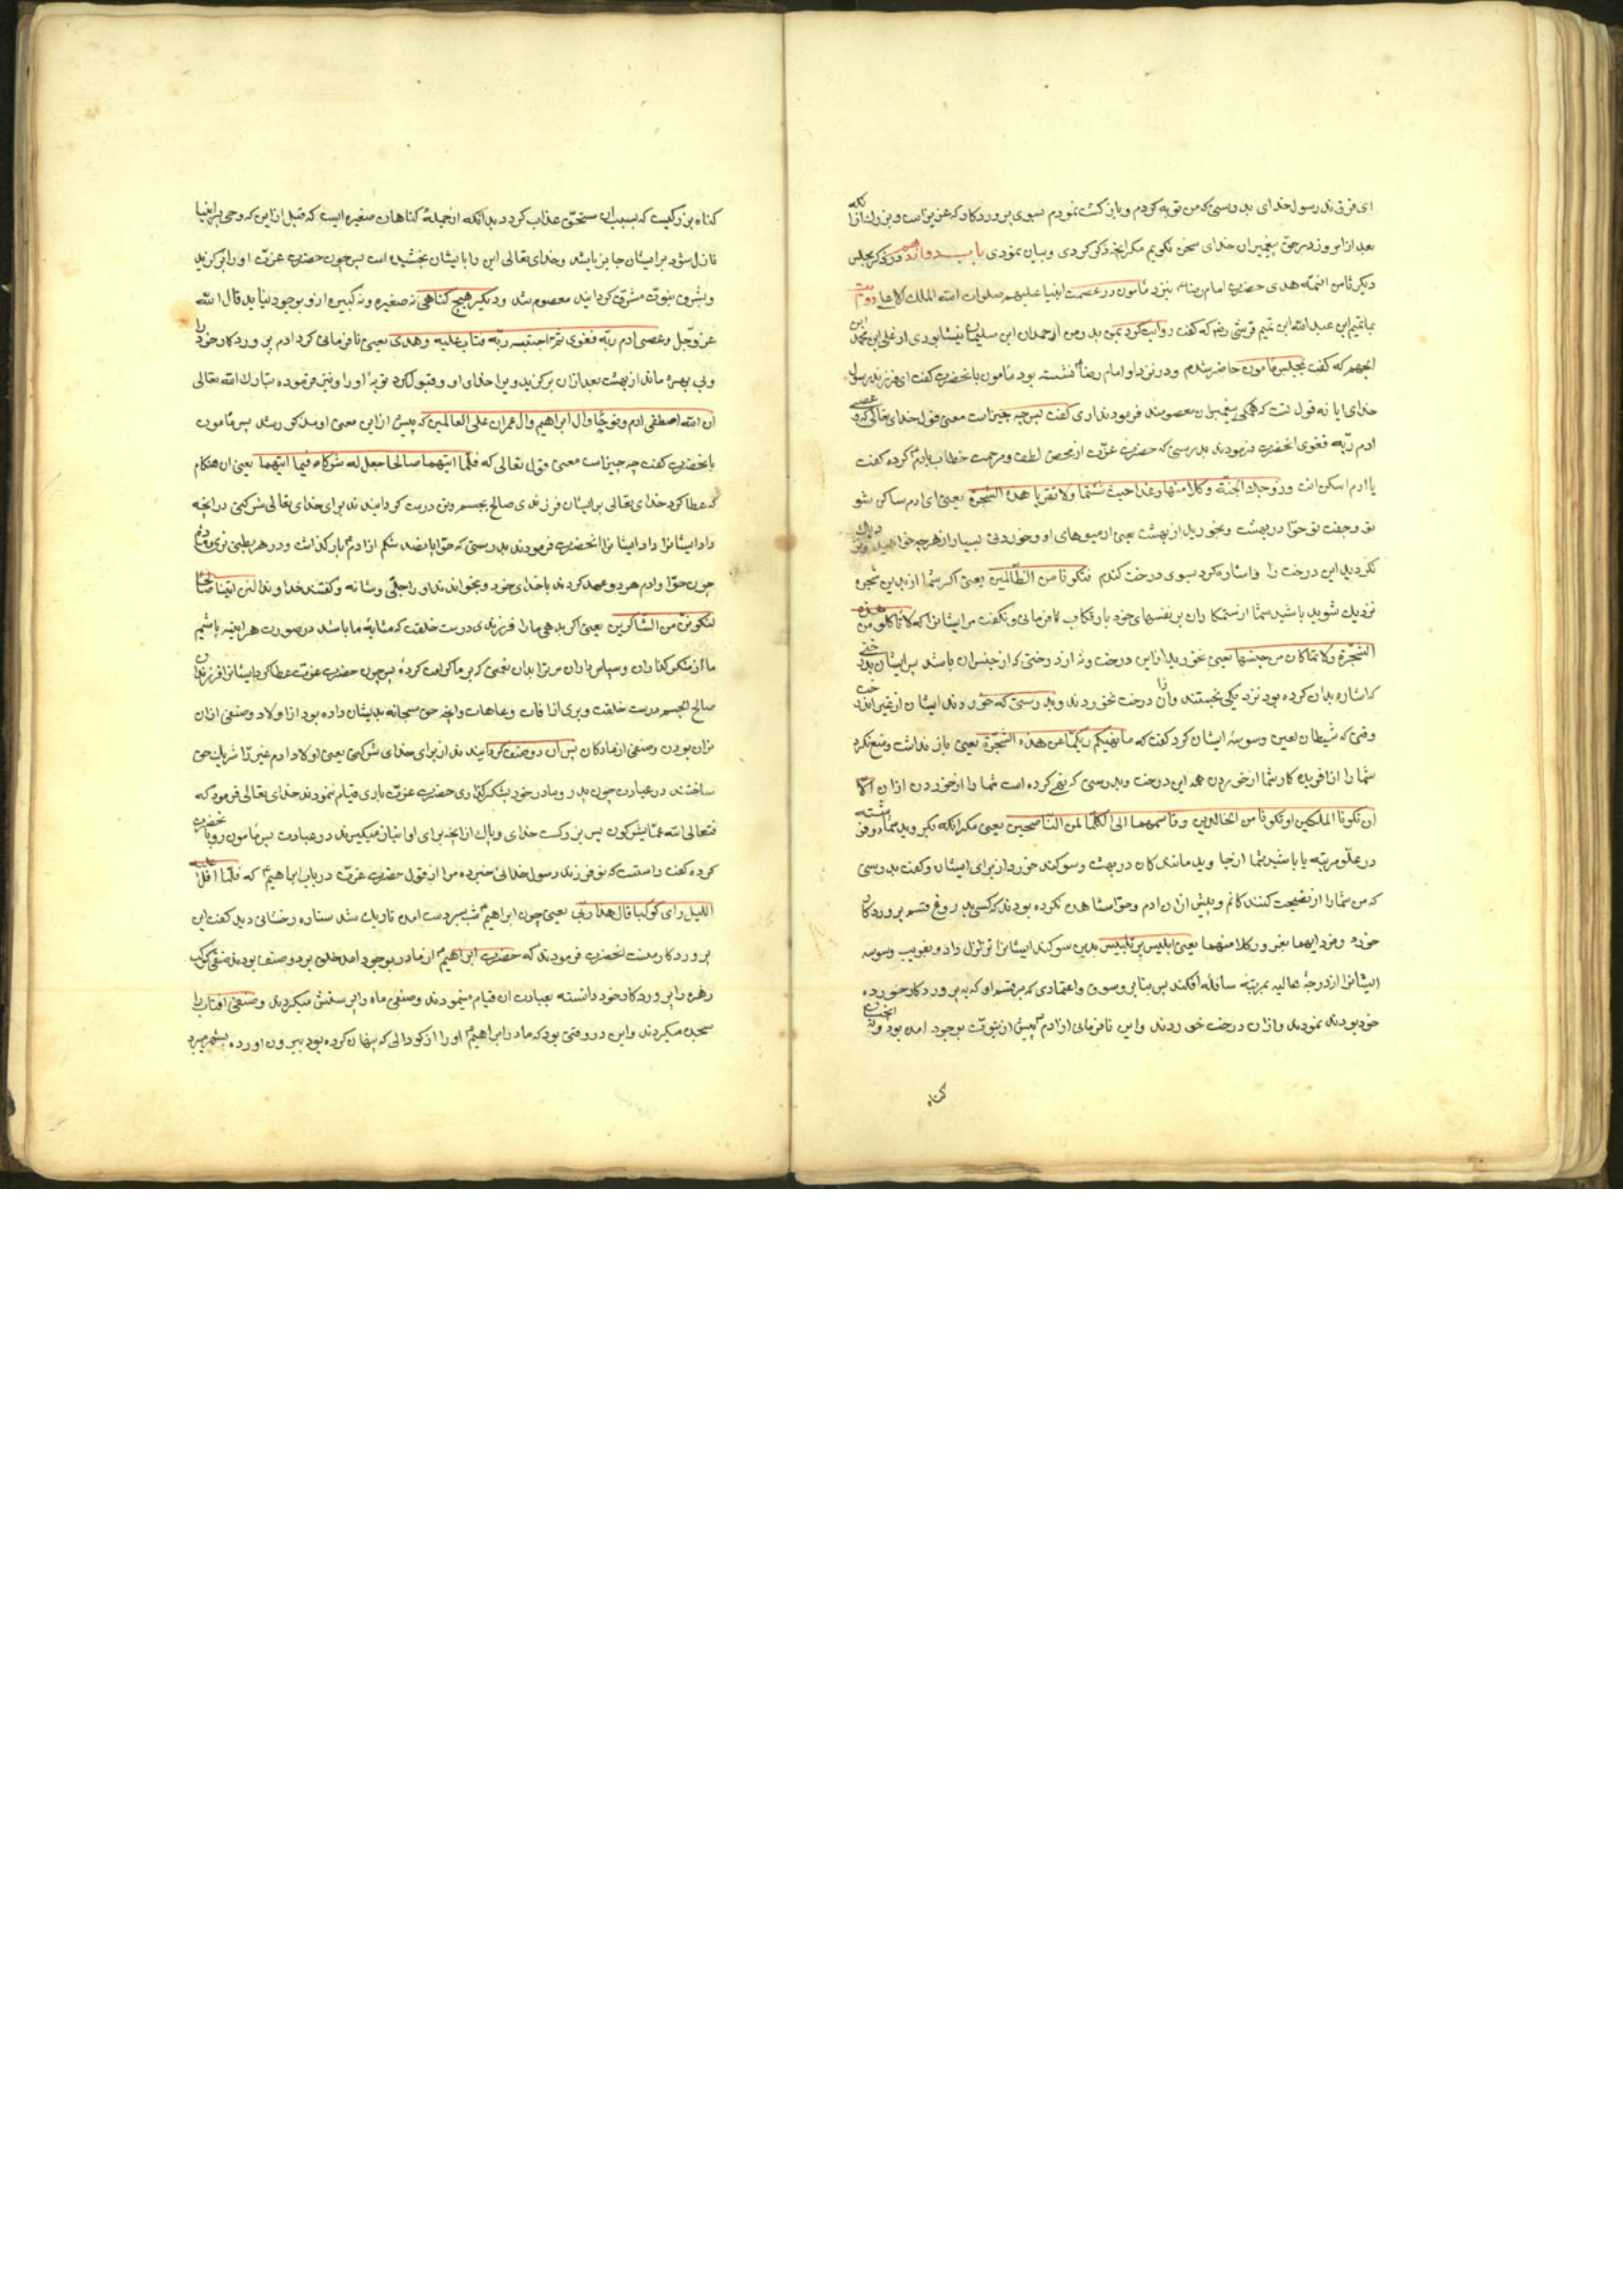 ای فرزند رسول خدای بدرستی که من توبه کردم و بازکشت نمودم بسوی پروردکار که عزیزاست و بزرك از انکه
بعد از امروز در حق پیغمبران خدای سخن نکویم مکر انچه ذکر کردی و بیان نمودی باب دوازدهم در ذکر مجلس
دیکر ثامن ائمّه هدی حضرت امام رضا نزد مأمون در عصمت انبیا علیهم صلوات الله الملك الاعلی
تمیم ابن عبد الله ابن تمیم قرشی رض که کفت روایت کرد بمن پدر من از حمدان ابن سلیمان نیشابوری از علی ابن محمد ابن
الجهم که کفت بمجلس مأمون حاضر شدم و در نزد او امام رضا نشسته بود مأمون بانحضرت کفت ای فرزند رسول
خدای ایا نه قول تست که همکی پیغمبران معصومند فرمودند اری کفت پس چه چیز است معنی قول خدای تعالی که و عصی
ادم ربّه فغوی انحضرت فرمودند بدرستی که حضرت عزّت از محض لطف و مرحمت خطاب بادم کرده کفت
یا ادم اسکن انت و زوجك الجنّة و کلا منها رغدا حیث شئتما ولا تقربا هذه الشجرة یعنی ای ادم ساکن شو
تو و جفت تو حوّا در بهشت و بخورید از بهشت یعنی از میوهای او و خوردنی بسیار از هرچه خواهید
نکردید این درخت را و اشاره کرد بسوی درخت کندم فتکونا من الظّالمین یعنی اکر شما ازین شجره
نزدیك شوید باشید شما از ستمکاران بر نفسهای خود بارتکاب نافرمانی و نکفت مر ایشانرا که لا تأکلو من هذه
الشجّرة ولا مماکان من جنسها یعنی نخورید از این درخت و نه از درختی که از جنس ان باشد پس ایشان بدرختی
که اشاره بدان کرده بود نزدیکی نجستند و از ان درخت نخوردند و بدرستی که خوردند ایشان از غیر ان درخت
وقتی که شیطان لعین وسوسهٔ ایشان کرد کفت که ما نهیکم ربّکما عن هذه الشجّرة یعنی باز نداشت و منع نکرد
شما را افریدکار شما از خوردن این درخت و بدرستی که نهی کرده است شما را از خوردن از ان الّا
ان تکونا الملکین او تکونا من الخالدین و قاسمهما انی لکما لمن النّاصحین یعنی مکر انکه بکردید شما دو فرشته
در علّو مرتبه یا باشید شما از جاویدماندکان در بهشت و سوکند خورد از برای ایشان و کفت بدرستی
که من شما را از نصیحت کنندکانم و پیش از ان ادم و حوّا مشاهده نکرده بودند که کسی بدروغ قسم بپروردکار
خورد فدلیهما بغرور فکلا منهما یعنی ابلیس پر تلبیس بدین سوکند ایشانرا تزلزل داد و بفریب و وسوسه
ایشانرا از درجهٔ عالیه بمرتبهٔ سافله افکند پس بنابر وسوق و اعتمادی که بر قسم او که به پروردکار خورده
خود بودند نمودند و از ان درخت خوردند و این نافرمانی از ادم پیش از نبوّت بوجود امده بود و نه
کناه
کناه بزرکیست که بسبب ان مستحق عذاب کردد بدانکه از جملهٔ کناهان صغیره ایست که قبل از این که وحی بر انبیا
نازل شود بر ایشان جایز باشد و خدای تعالی این را بایشان بخشیده است پس چون حضرت عزّت او را برکزید
و بشرف نبوّت مشرّف کردانید معصوم شد و دیکر هیچ کناهی نه صغیره و نه کبیره از و بوجود نیاید قال الله
عزّ وجّل و عصی ادم ربّه فغوی ثمّ اجتبیه ربّه فتاب علیه و هدی یعنی نافرمانی کرد ادم پروردکار خود را
و بی بهره ماند از بهشت بعد از ان برکزید ویرا خدای او و قبول کرد توبهٔ او را و نیز فرموده تبارك الله تعالی
ان الله اصطفی ادم و نوحًا و ال ابراهیم و ال عمران علی العالمین که پیش از این معنی او مذکور شد پس مأمون
بانحضرت کفت چه چیز است معنی قول تعالی که فلّما اتیهما صالحا جعل له شرکاء فیما اتیهما یعنی ان هنکام
که عطا کرد خدای تعالی بر ایشان فرزندی صالح بجسم و تن درست کردانیدند برای خدای تعالی شرکتی در انچه
داد ایشانرا داد ایشانرا انحضرت فرمودند بدرستی که حوّا پانصد شکم از ادم بار کذاشت و در هر بطنی نری و ماده
چون حوّا و ادم هر دو عهد کردند با خدای خود و بخواندند او را جلّی و شانه و کفتند خداوندا لئن اتیتنا صالحًا
لنکوننّ من الشّاکرین یعنی اکر بدهی ما را فرزندی درست خلقت که مثابهٔ ما باشد در صورت هر اینه باشیم
ما از شکرکذاران و سپاس داران مر ترا بدان نعمتی که بر ما کرامت کردهٔ پس چون حضرت عزّت عطا کرد ایشانرا فرزندان
صالح الجسم درست خلقت و بری از افات و عاهات و انچه حق سبحانه بدیشان داده بود از اولاد و صنفی از ان
نران بودن و صنفی از مادکان پس ان دو صنف کردانیدند از برای خدای شرکتی یعنی اولاد ادم غیر را شریك حق
ساختند در عبادت چون پدر و مادر خود بشکرکذاری حضرت عزّت باری قیام ننمودند خدای تعالی فرمود که
فتعالی الله عمّا یشرکون پس بزرکست خدای و پاك از انچه برای او انباز میکیرند در عبادت پس مأمون رو بانحضرت
کرده کفت راستست که تو فرزند رسول خدائی خبر ده مرا از قول حضرت عزّت در باب ابراهیم که فلّما جنّ علیه
اللیل رای کوکبا قال هذا ربّی یعنی چون ابراهیم شب بسر دست امدن تاریك شد ستاره رخشانی دید کفت این
پروردکار منست انحضرت فرمودند که حضرت ابراهیم از مادر بوجود امد خلق بر دو صنف بودند صنفی کوکب
زهره را پروردکار خود دانسته بعبادت ان قیام مینمودند و صنفی ماه را پرستش میکردند و صنفی افتاب را
سجده میکردند و این در وقتی بود که مادر ابراهیم او را از کودالی که پنهان کرده بود بیرون اورده